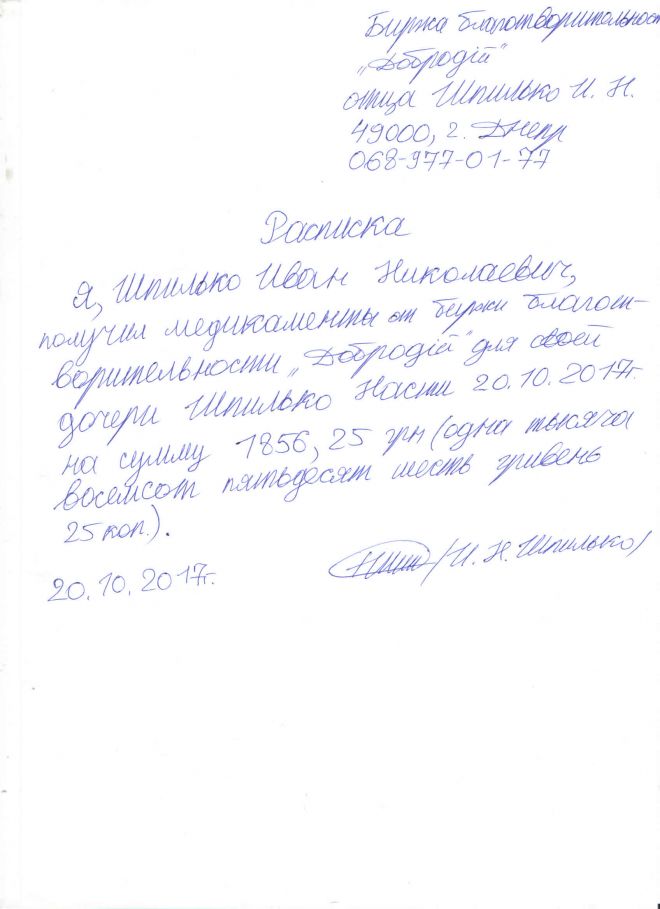 Биржа благотворительност
„Добродій"
отца Шпилько И. Н.
49000, г. Днепр
068-977-01-77
Расписка
Я, Шпилько Иван Николаевич,
получил медикаменты от биржи благот-
ворительности „Добродій" для своей
дочери Шпилько Насти 20.10.2017г.
на сумму 1856,25 грн (одна тысяча
восемсот пятьдесят шесть гривень
25 коп.).
20.10.2017г. /И. Н. Шпилько/